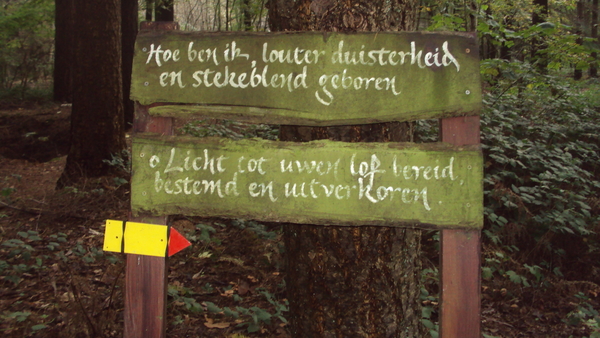 Hoe ben ik, louter duisterheid
en stekeblend geboren
o Licht tot uwen lof bereid,
bestemd en uitverkoren.